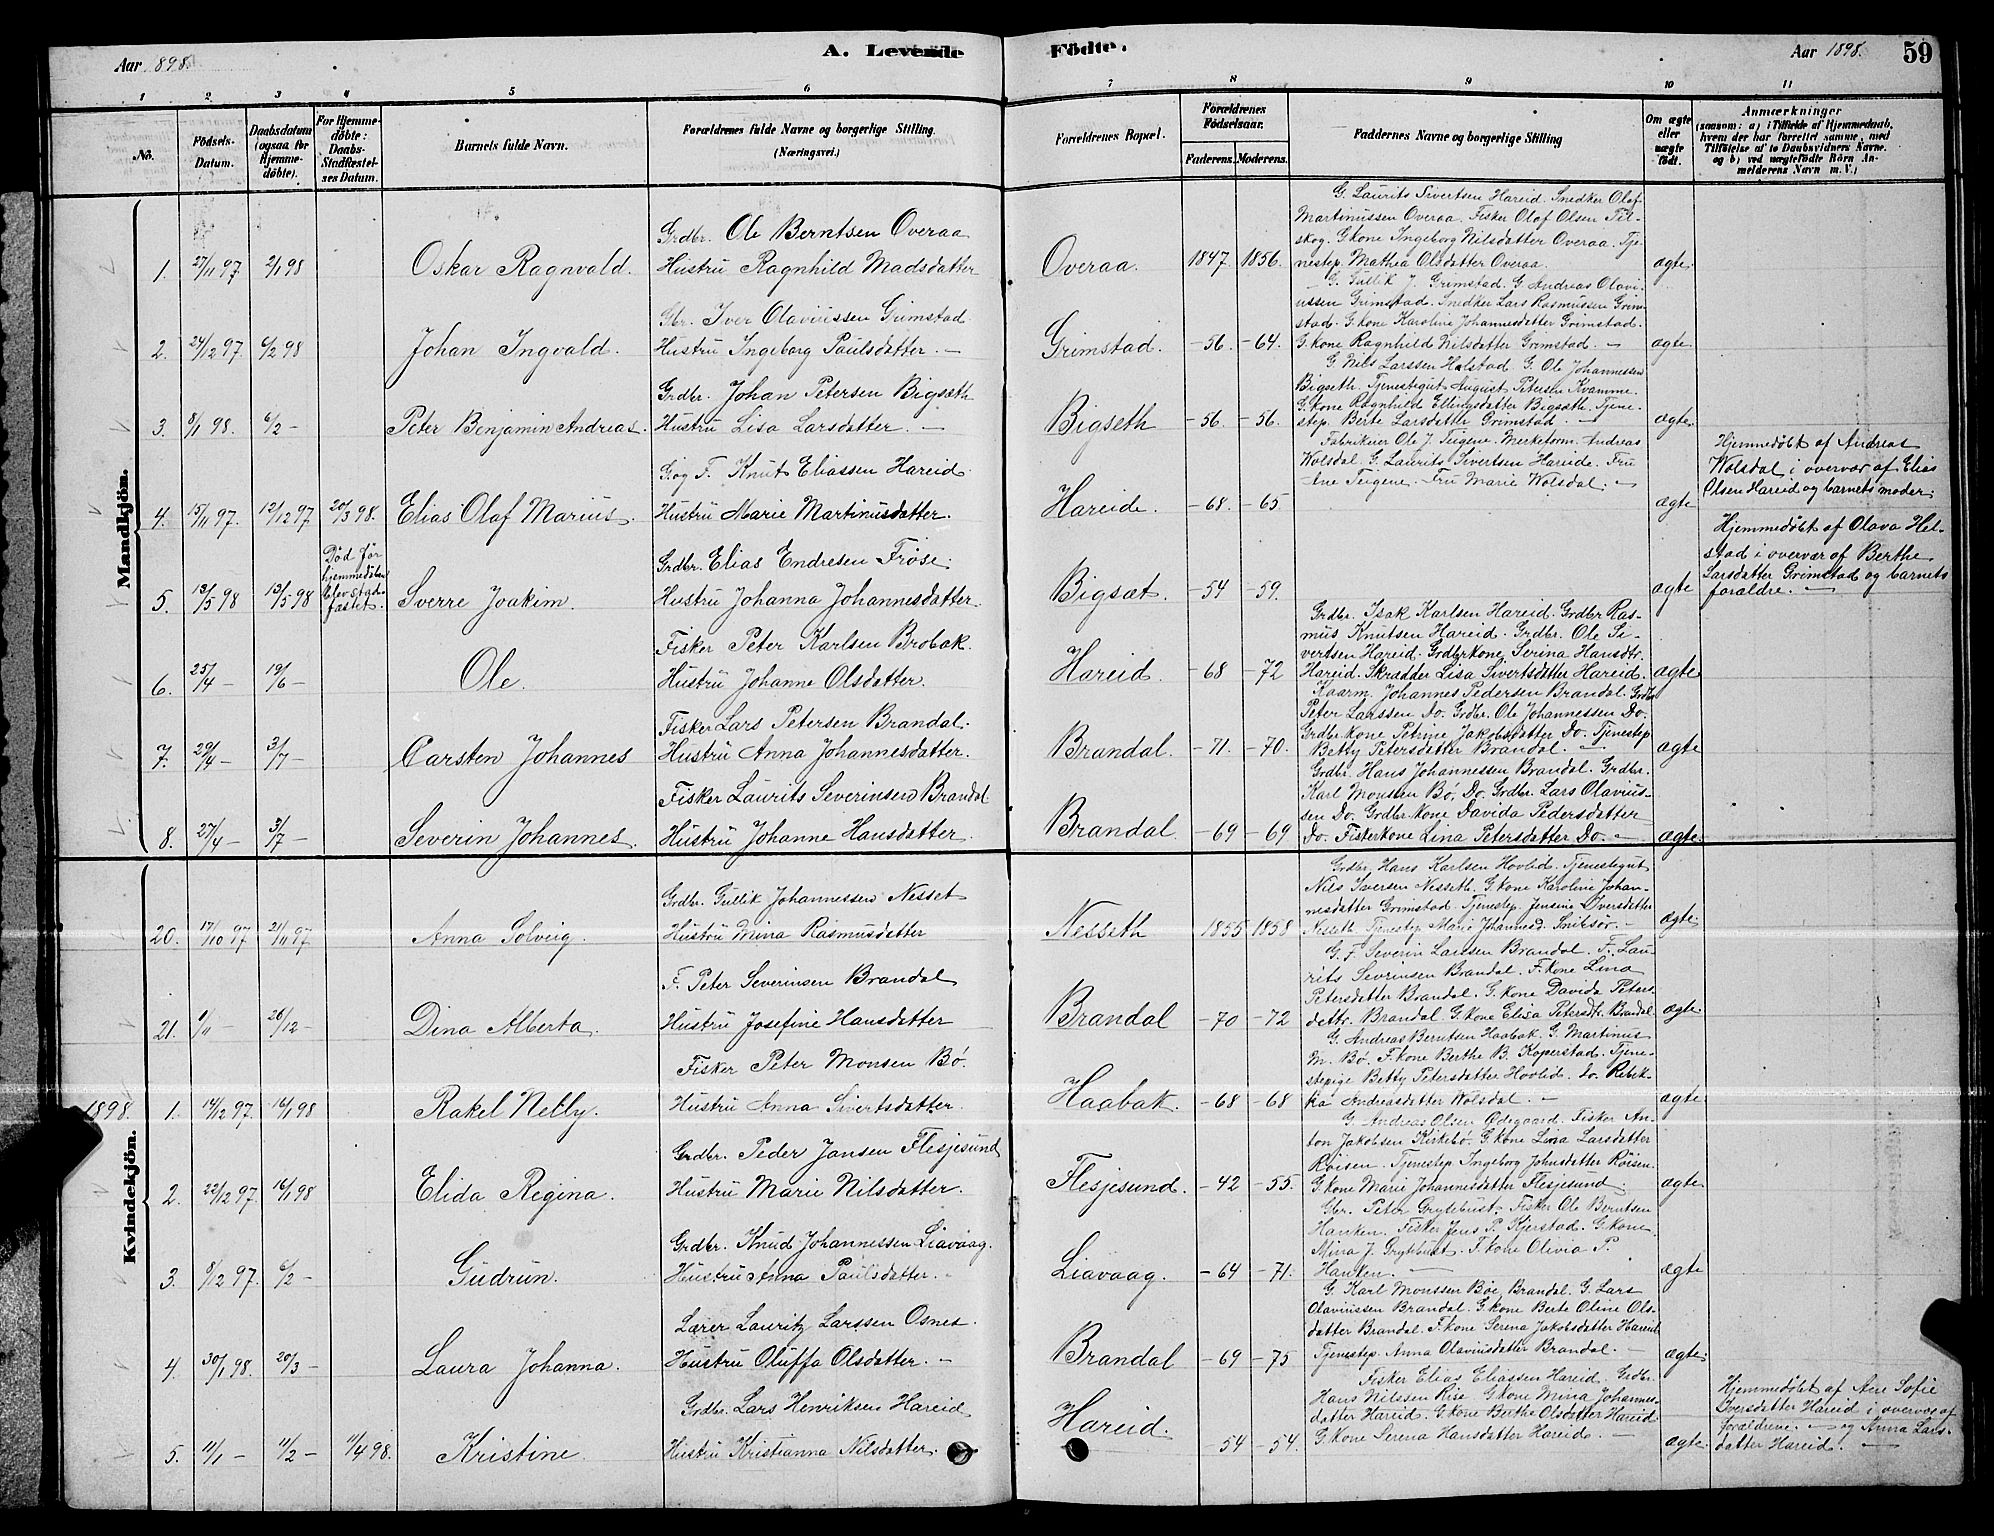 Aar 1898. A. Levende Födte. Aar 1898. 59
1 2 3 4 5 6 7 8 9 10 11
No. Födsels-Datum. Daabsdatum (ogsaa for Hjemmedöbte). For Hjemmedöbte: Daabs-Stadfæstelses Datum. Barnets fulde Navn. Forældrenes fulde Navne og borgerlige Stilling. (Næringsvei.) Forældrenes Bopæl. Forældrenes Födselsaar. Faderens. Moderens. Faddernes Navne og borgerlige Stilling Om ægte eller uægte födt. Anmærkninger (saasom: a) i Tilfælde af Hjemmedaab, hvem der har forrettet samme, med Tilföielse af to Daabsvidners Navne. og b) ved uægtefödte Börn Anmelderens Navn m. V.)
Mandkjön.
G. Laurits Sivertsen Hareid. Snedker Olaf
Grdbr. Ole Berntsen Overaa
Martinussen Overaa. Fisker Olaf Olsen Til-
skog. G.kone Ingeborg Nilsdatter Overaa. Tje-
1. 27/11 97. 2/1 98 Oskar Ragnvald. Hustru Ragnhild Madsdatter Overaa. 1847. 1856. nestep. Mathea Olsdatter Overaa. ægte.
G. Gullik J. Grimstad. G. Andreas Olavi-
Gbr. Iver Olaviussen Grimstad.
ussen Grimstad. Snedker Lars Rasmussen Grim-
stad. G.kone Karoline Johannesdatter Grimstad.
2. 24/12 97. 6/2 98 Johan Ingvald. Hustru Ingeborg Paulsdatter. — Grimstad. -56. -64. G.kone Ragnhild Nilsdatter Grimstad. — ægte
G. Nils Larssen Halstad. G. Ole Johannessen
Grdbr. Johan Petersen Bigsæth
Bigseth. Tjenestegut August Petersen Kvamme.
G.kone Ragnhild Ellingsdatter Bigsæth. Tjene-
3. 8/1 98. 6/2 - Peter Benjamin Andreas. Hustru Lisa Larsdatter. — Bigseth -56. -56. step. Berte Larsdatter Grimstad. — ægte.
Fabrikeier Ole J. Teigene. Merketorm. Andreas
G. og F. Knut Eliassen Hareid.
Wolsdal. G. Laurits Sivertsen Hareide. Fru
Ane Teigene. Fru Marie Wolsdal. —
4. 15/11 97. 12/12 97 20/3 98. Elias Olaf Marius. Hustru Marie Martinusdatter. Hareide. -68. -65 ægte Hjemmedøbt af Andreas
Wolsdal i overvær af Elias
Olsen Hareid og barnets moder.
Grdbr. Elias Endresen Frøse.
5. 13/5 98 13/5 98 Død før hjemmedøben blev stadfæstet. Sverre Joakim. Hustru Johanna Johannesdatter. Bigsæt. -54 -59. ægte Hjemmedøbt af Olava Hel-
stad i overvær af Berthe
Larsdatter Grimstad og barnets
forældre. —
Grdbr. Isak Karlsen Hareid. Grdbr Ras-
Fisker Peter Karlsen Brobak.
mus Knutsen Hareid. Grdbr. Ole Si-
vertsen Hareid. Grdbrkone Serina Hansdtr.
6. 25/4 - 19/6 - Ole. Hustru Johanne Olsdatter. Hareid. -68 -72 Hareid. Skrædder Lisa Sivertsdatter Hareid. ægte
Kaarm. Johannes Pedersen Brandal. Grdbr
Fisker Lars Petersen Brandal.
Peter Larssen Do. Grdbr. Ole Johannessen Do.
Grdbrkone Petrine Jakobsdatter Do. Tjenestep
7. 29/4 - 3/7 - Carsten Johannes Hustru Anna Johannesdatter. Brandal. -71. -70. Betty Petersdatter Brandal. — ægte
Grdbr. Hans Johannessen Brandal. Grdbr.
Fisker Laurits Severinsen Brandal
Karl Monssen Bö. Do. Grdbr. Lars Olavius-
sen Do. Grdbr.kone Davida Pedersdatter
8. 27/4 - 3/7 - Severin Johannes. Hustru Johanne Hansdatter. Brandal. -69 -69 Do. Fiskerkone Lina Petersdatter Do. — ægte.
Kvindekjön.
Grdbr. Hans Karlsen Hovlid. Tjenestegut
Grdbr. Gullik Johannessen Nesset
Nils Iversen Nesseth. G.kone Karoline Johan-
nesdatter Grimstad. Tjenestep. Jensine Iversdatter
20. 17/10 97 21/11 97 Anna Solveig. Hustru Mina Rasmusdatter Nesseth 1855 1858 Nesseth Tjenestep. Marie Johannesd. Snibsør. — ægte
G. F. Severin Larssen Brandal. F. Lau-
F. Peter Severinsen Brandal
rits Sevrinsen Brandal. F.kone Lina
Petersdatter Brandal. G.kone Davida Peters-
21. 1/11 - 26/12 - Dina Alberta. Hustru Josefine Hansdatter Brandal -70 -72 dattr. Brandal G.kone Elisa Petersdtr. Brandal ægte
G. Andreas Berntsen Haabak. G. Martinus
Fisker Peter Monsen Bø.
M. Bø. F.kone Berthe B. Koperstad. Tjene-
stepige Betty Petersdatter Hovlid. do Rebek-
1898. 1. 14/12 97. 16/1 98 Rakel Nelly. Hustru Anna Sivertsdatter. Haabak. -68 -68 ka Andreasdatter Wolsdal. — ægte
G. Andreas Olsen Ødegaard. Fisker An-
Grdbr. Peder Jansen Flesjesund
ton Jakobsen Kirkebø. G.kone Lina Larsdatter
Røisen. Tjenestep. Ingeborg Johnsdatter Røisen.
2. 22/12 97. 16/1 98 Elida Regina. Hustru Marie Nilsdatter. Flesjesund. -42 -55. G.kone Marie Johannesdatter Flesjesund. ægte
Gbr. Peter Grytebust. Fisker Ole Berntsen
Grdbr. Knud Johannessen Liavaag.
Hanken. Fisker Jens P. Kjerstad. G.kone
Mina J. Grytebust. F.kone Olivia P.
3. 9/12 97. 6/2 - Gudrun. Hustru Anna Paulsdatter. Liavaag. -64 -71. Hanken. — ægte
G. Karl Monssen Bøe, Brandal. G. Lars
Lærer Lauritz Larssen Osnes.
Olaviussen Brandal. G.kone Berte Oline Ols-
datter Brandal. F.kone Serena Jakobsdatter Hareid
4. 30/1 98. 20/3 - Laura Johanna. Hustru Oluffa Olsdatter. — Brandal -69 -75 Tjenestep. Anna Olaviusdatter Brandal. — ægte.
Fisker Elias Eliassen Hareid. Grdbr.
Grdbr. Lars Henriksen Hareid
Hans Nilssen Rise G.kone Mina Johannes-
datter Hareid. G.kone Berthe Olsdatter Hareid
5. 11/1 - 11/2 - 11/4 98. Kristine. Hustru Kristianna Nilsdatter. Hareid. -54 -54. G.kone Serena Hansdatter Hareid. — ægte. Hjemmedøbt af Ane Sofie
Iversdatter Hareid i overvær af
forældrene. — og Anna Lars-
datter Hareid. —